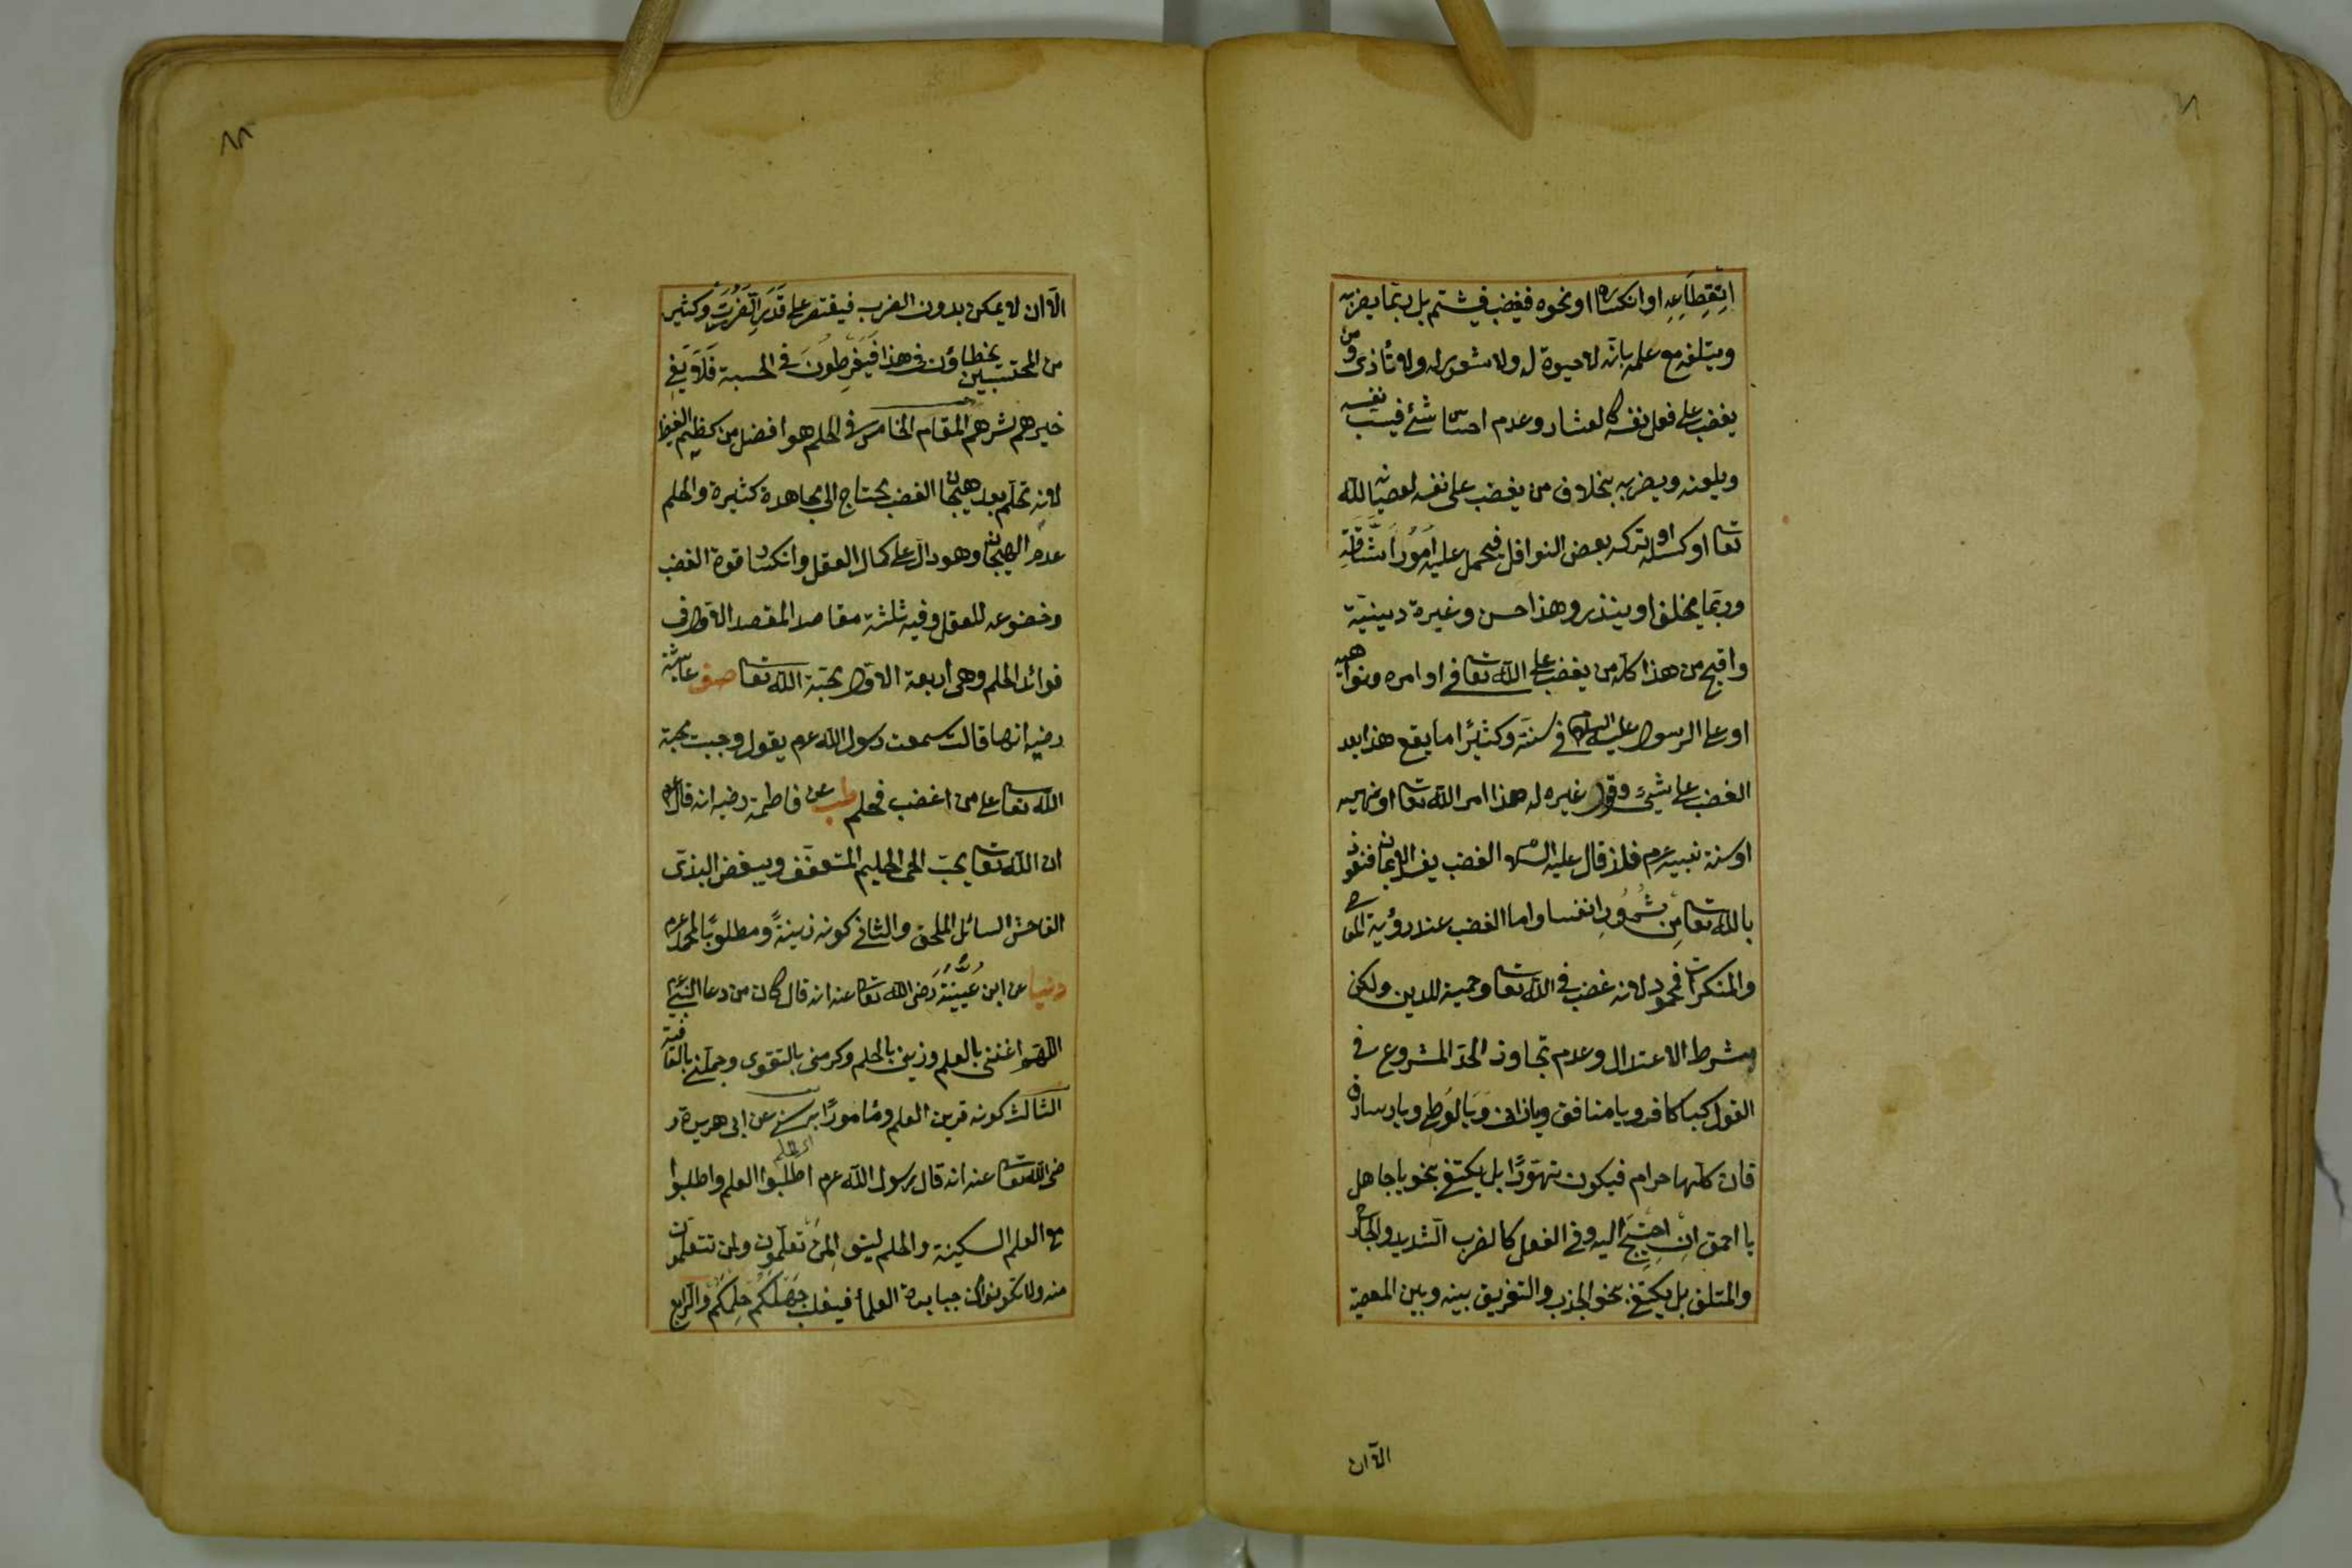 اِنْقِطَاعِهِ او انكساره او نحوه فيغضب فيشتم بل ربّما يضربه
ويتلفه مع علمه بانّه لا حيوة له ولا شعور له ولا تأذى ومن
يغضب على فعل نفسه كالعثار وعدم احسان شئ فيسبّ نفسه
ويلعنه ويضربه بخلاف من يغضب على نفسه لعصيانه لله
تعا او كسله او تركه بعض النوافل فيحمل عليه اُمُوراً شَاقَّةً
وربّما يحلف او ينذر وهذا حسن وغيرة دينيّة
واقبح من هذا كلّه من يغضب على الله تعا فى اوامره ونواهيه
او على الرسول عليه السلام فى سننه وكثيرًا ما يقع هذا بعد
الغضب على شئ وقول غيره له هذا امر الله تعا او نهيه
او سنة نبيه عرم فلذ قال عليه السلام الغضب يفسد الايمان فنعوذ
بالله تعا مِن شُرُورِ انفسنا واما الغضب عند رؤية المعاصى
والمنكرات فمحمود لانه غضب فى الله تعا وحمية للدين ولكن
بشرط الاعتدال وعدم تجاوز الحدّ المشروع فى
القول كيا كافر ويا منافق ويا زانى وَيا لُوطى ويا سارق
فان كلّها حرام فيكون تهوّرًا بل يكتفى بنحو يا جاهل
يا احمق اِنِ احْتِيجَ اليه وفى الفعل كالضرب الشديد والجارح
والمتلف بل يكتفى بنحو الجذب والتفريق بينه وبين المعصية
الّا ان
٨٨
الّا ان لا يمكن بدون الضرب فيقتصر على قَدَرِ الضَّرُورَةِ وكثير
من المحتسبين يخطاؤن فى هذا فَيُفْرِطُونَ فى الحسبة فَلَا يَفِى
خيرهم شرهم المقام الخامس فى الحلم هو افضل من كظم الغيظ
لانه تحلّم بعد هيجان الغضب يحتاج الى مجاهدة كثيرة والحلم
عدم الهيجان وهو دالّ على كمال العقل وانكسار قوة الغضب
وخضوعه للعقل وفيه ثلثة مقاصد المقصد الاوّل فى
فوائد الحلم وهى اربعة الاوّل محبّة الله تعا صف عائشة
رضيه انها قالت سمعت رسول الله عرم يقول وجبت محبّة
الله تعا على من اغضب فحلم طب عن فاطمة رضيه انه قال عرم
ان الله تعا يحبّ الحى الحليم المتعفّف ويبغض البذىّ
الفاحش السائل الملحف والثانى كونه زينةً ومطلوبًا لمحمد عرم
دنيا عن ابن عُيَيْنَةَ رَضى الله تعا عنه انه قال كان من دعا النبى عرم
اللّهمّ اغننى بالعلم وزينى بالحلم وكرمنى بالتقوى وجمّلنى بالعافية
الثالث كونه قرين العلم ومأمورًا به سنى عن ابى هريرة ر
ضى الله تعا عنه انه قال رسول الله عرم اطلبوا العلم واطلبوا
مع العلم السكينة والحلم لينوا لِمَنْ تعلّمون ولمن تتعلمون
منه ولا تكونوا من جبابرة العلماء فيغلب جَهْلُكُم حِلمَكُم والرابع